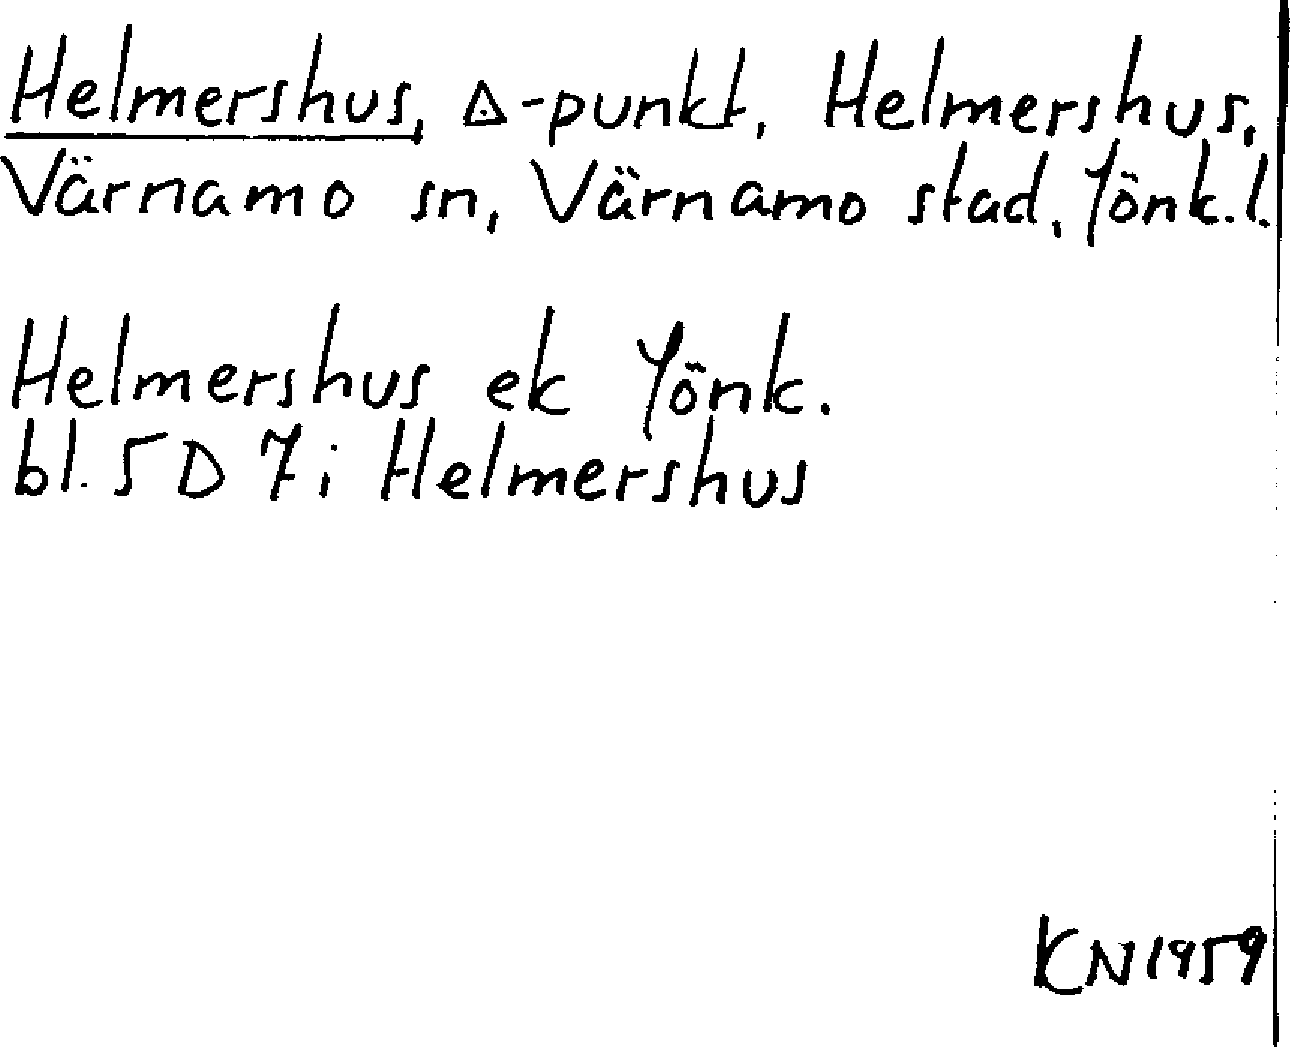 Helmershus, ◬-punkt, Helmershus,
Värnamo sn, Värnamo stad, Jönk.l.
Helmershus ek Jönk.
bl. 5D 7i Helmershus
KN1959